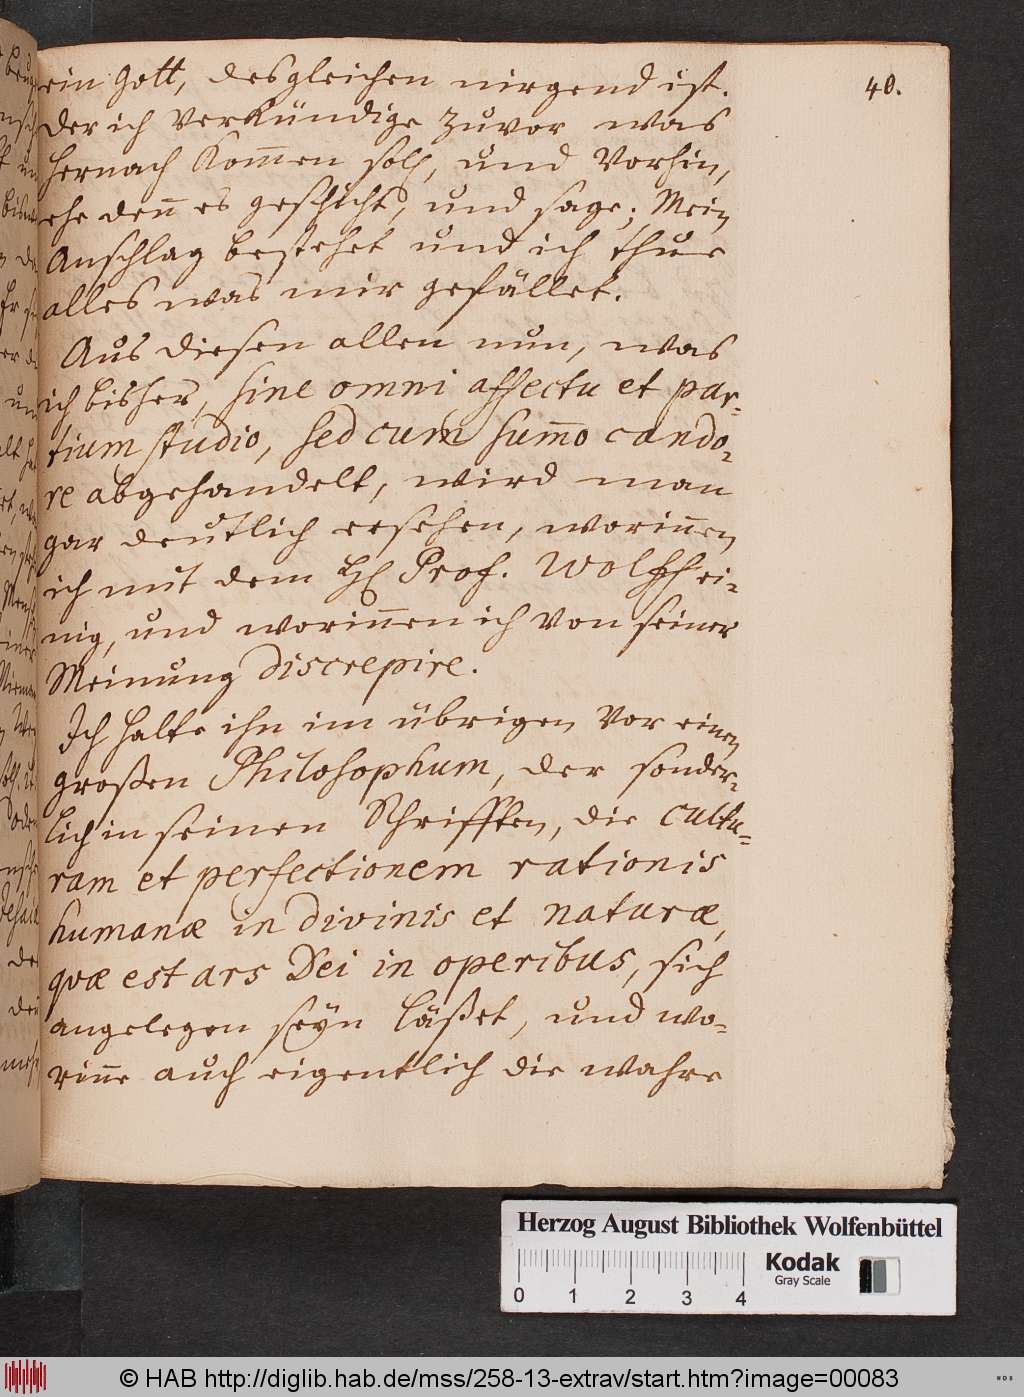 40.
ein Gott, desgleichen nirgend ist.
Der ich verkündige zuvor was
hernach kom̄en soll, und vorhin,
ehe den̄ es geschicht, und sage; Mein
Anschlag bestehet und ich thue
alles was mir gefället.
Aus diesen allen nun, was
ich bisher, sine omni affectu et par-
tium studio, sed cum sum̄o cando-
re abgehandelt, wird man
gar deutlich ersehen, worin̄en
ich mit dem H. Prof. Wolffh ei-
nig, und worin̄en ich von seiner
Meinung discrepire.
Ich halte ihn im übrigen vor einen
großen Philosophum, der sonder-
lich in seinen Schrifften, die cultu-
ram et perfectionem rationis
humanæ in divinis et naturæ,
qvæ est ars Dei in operibus, sich
angelegen seyn läßet, und wo-
rin̄e auch eigentlich die wahre
Herzog August Bibliothek Wolfenbüttel
Kodak
Gray Scale
0 1 2 3 4
© HAB http://diglib.hab.de/mss/258-13-extrav/start.htm?image=00083